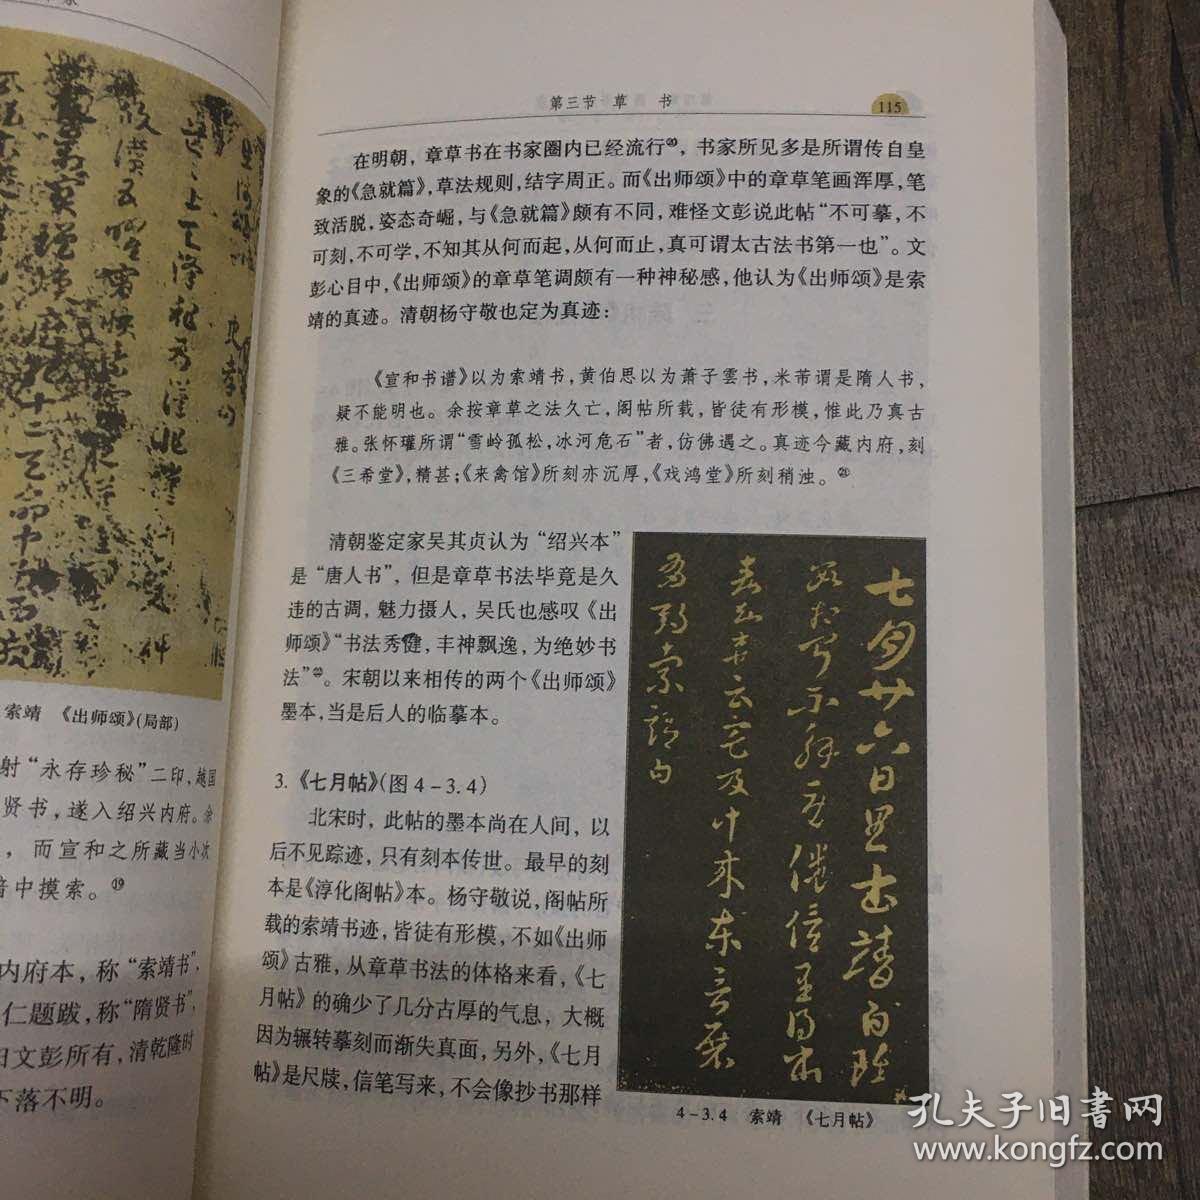 索靖 《出师颂》(局部)
射“永存珍秘”二印,越国
贤书,遂入绍兴内府。余
,而宣和之所藏当小次
暗中摸索。⑲
内府本,称“索靖书”,
仁题跋,称“隋贤书”,
归文彭所有,清乾隆时
下落不明。
第三节 草 书
115
在明朝,章草书在书家圈内已经流行⑳,书家所见多是所谓传自皇
象的《急就篇》,草法规则,结字周正。而《出师颂》中的章草笔画浑厚,笔
致活脱,姿态奇崛,与《急就篇》颇有不同,难怪文彭说此帖“不可摹,不
可刻,不可学,不知其从何而起,从何而止,真可谓太古法书第一也”。文
彭心目中,《出师颂》的章草笔调颇有一种神秘感,他认为《出师颂》是索
靖的真迹。清朝杨守敬也定为真迹:
《宣和书谱》以为索靖书,黄伯思以为萧子雲书,米芾谓是隋人书,
疑不能明也。余按章草之法久亡,阁帖所载,皆徒有形模,惟此乃真古
雅。张怀瓘所谓“雪岭孤松,冰河危石”者,仿佛遇之。真迹今藏内府,刻
《三希堂》,精甚;《来禽馆》所刻亦沉厚,《戏鸿堂》所刻稍浊。㉑
清朝鉴定家吴其贞认为“绍兴本”
是“唐人书”,但是章草书法毕竟是久
违的古调,魅力摄人,吴氏也感叹《出
师颂》“书法秀健,丰神飘逸,为绝妙书
法”㉒。宋朝以来相传的两个《出师颂》
墨本,当是后人的临摹本。
3.《七月帖》(图4-3.4)
北宋时,此帖的墨本尚在人间,以
后不见踪迹,只有刻本传世。最早的刻
本是《淳化阁帖》本。杨守敬说,阁帖所
载的索靖书迹,皆徒有形模,不如《出师
颂》古雅,从章草书法的体格来看,《七
月帖》的确少了几分古厚的气息,大概
因为辗转摹刻而渐失真面,另外,《七月
帖》是尺牍,信笔写来,不会像抄书那样
七月廿六日
4-3.4 索靖 《七月帖》
孔夫子旧书网
www.kongfz.com